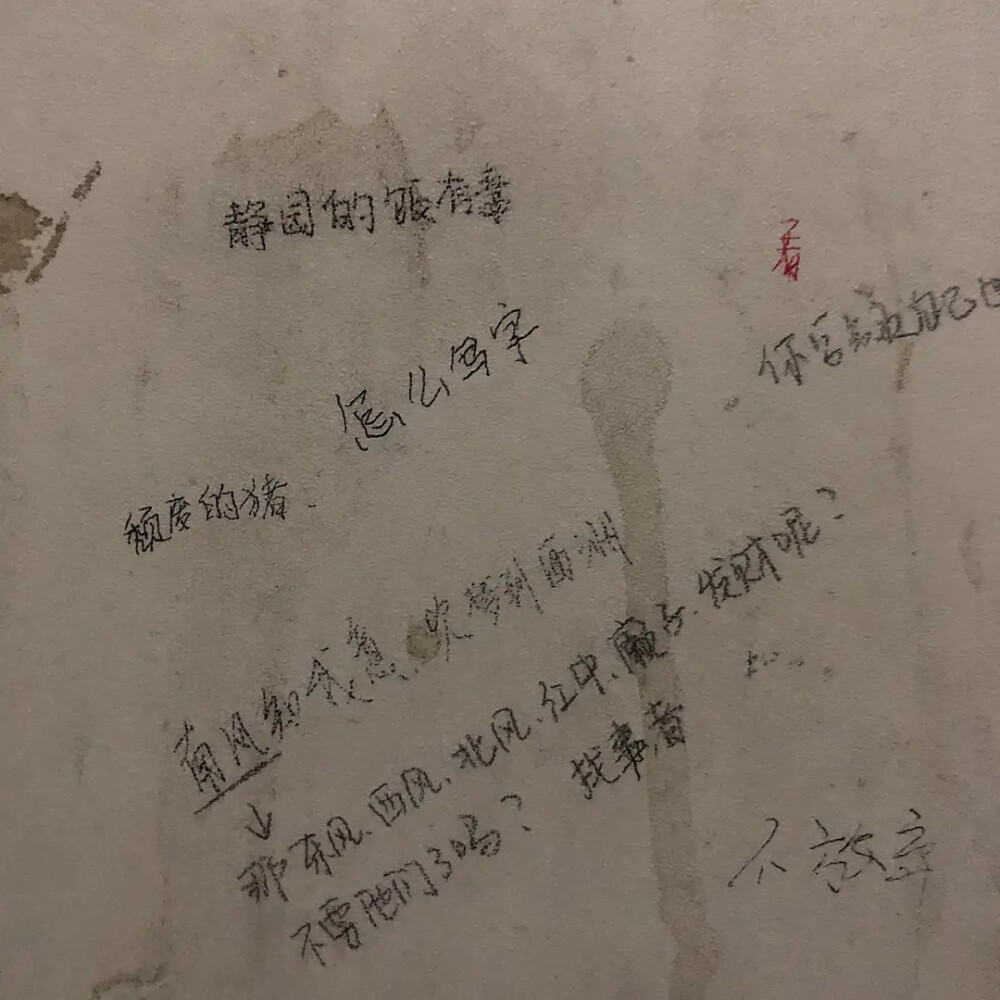 静园的饭有毒
看
你
自己
怎么写字
额度的猪
南风知我意,吹梦到西洲
↓
那东风、西风、北风、红中、癞子、发财呢?
不要他们了吗?
找事者
不放弃